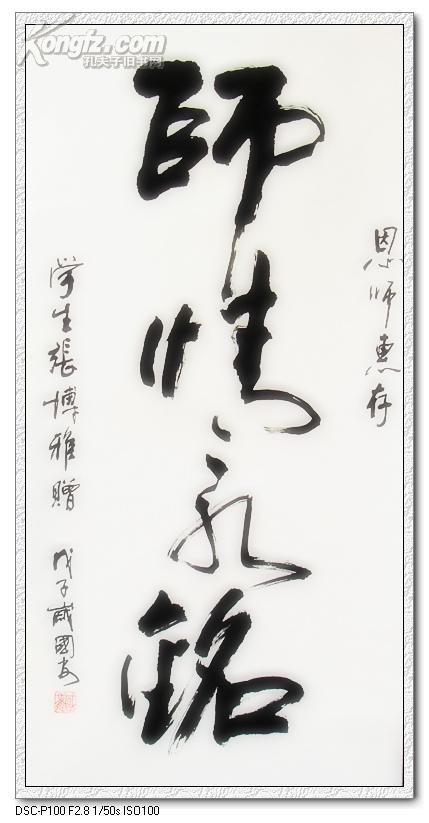 Kongfz.com
孔夫子旧书网
恩师惠存
師情永銘
学生張博雅贈
戊子戚國安
DSC-P100 F2.8 1/50s ISO100